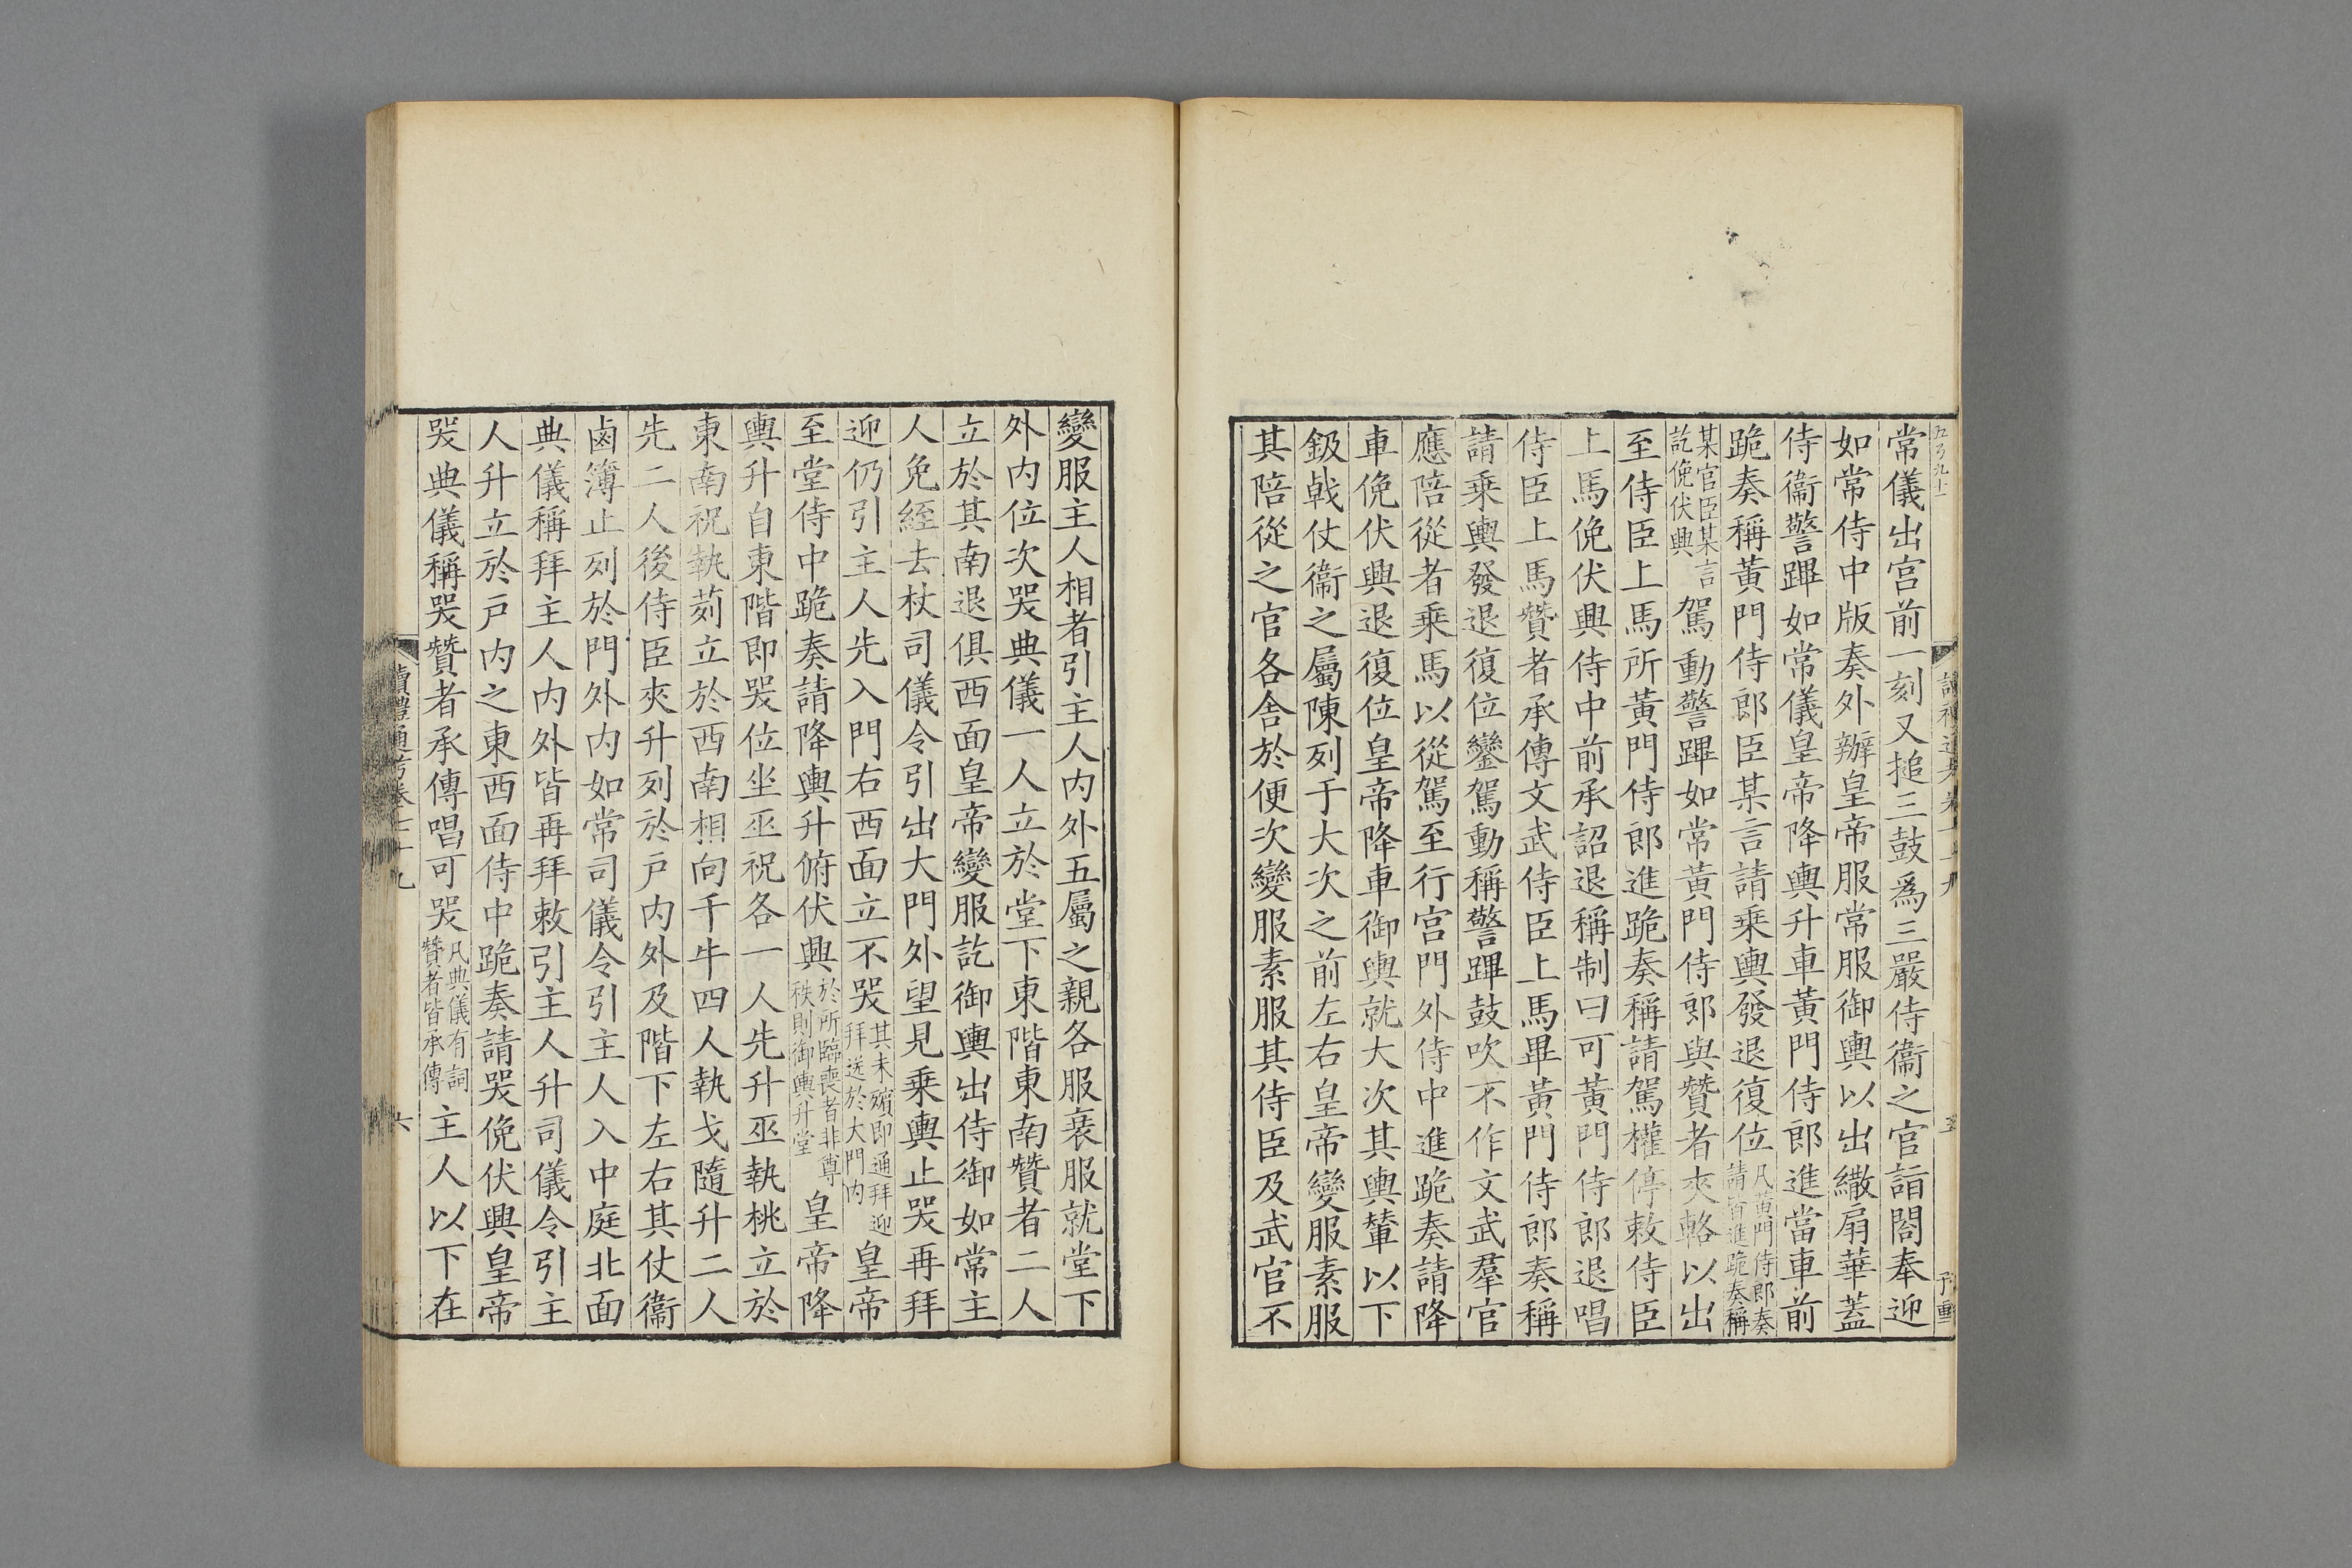 常儀出宮前一刻又搥三鼓為三嚴侍衞之官詣閤奉迎
如常侍中版奏外辦皇帝服常服御輿以出繖扇華蓋
侍衞警蹕如常儀皇帝降輿升車黃門侍郎進當車前
跪奏稱黃門侍郎臣某言請乗輿發退復位凡黃門侍郎奏請皆進跪奏稱
某官臣某言訖俛伏興駕動警蹕如常黃門侍郎與贊者夾輅以出
至侍臣上馬所黃門侍郎進跪奏稱請駕權停敕侍臣
上馬俛伏興侍中前承詔退稱制曰可黃門侍郎退唱
侍臣上馬贊者承傳文武侍臣上馬畢黃門侍郎奏稱
請乗輿發退復位鑾駕動稱警蹕鼓吹不作文武羣官
應陪從者乗馬以從駕至行宮門外侍中進跪奏請降
車俛伏興退復位皇帝降車御輿就大次其輿輦以下
鈒戟仗衞之屬陳列于大次之前左右皇帝變服素服
其陪從之官各舍於便次變服素服其侍臣及武官不
變服主人相者引主人内外五屬之親各服衰服就堂下
外内位次哭典儀一人立於堂下東階東南贊者二人
立於其南退俱西面皇帝變服訖御輿出侍御如常主
人免絰去杖司儀令引出大門外望見乗輿止哭再拜
迎仍引主人先入門右西面立不哭其未殯即通拜迎拜送於大門内皇帝
至堂侍中跪奏請降輿升俯伏興於所臨喪者非尊秩則御輿升堂皇帝降
輿升自東階即哭位坐巫祝各一人先升巫執桃立於
東南祝執茢立於西南相向千牛四人執戈隨升二人
先二人後侍臣夾升列於戸内外及階下左右其仗衞
鹵簿止列於門外内如常司儀令引主人入中庭北面
典儀稱拜主人内外皆再拜敕引主人升司儀令引主
人升立於戸内之東西面侍中跪奏請哭俛伏興皇帝
哭典儀稱哭贊者承傳唱可哭凡典儀有詞贊者皆承傳主人以下在
讀禮通考卷七十九
六